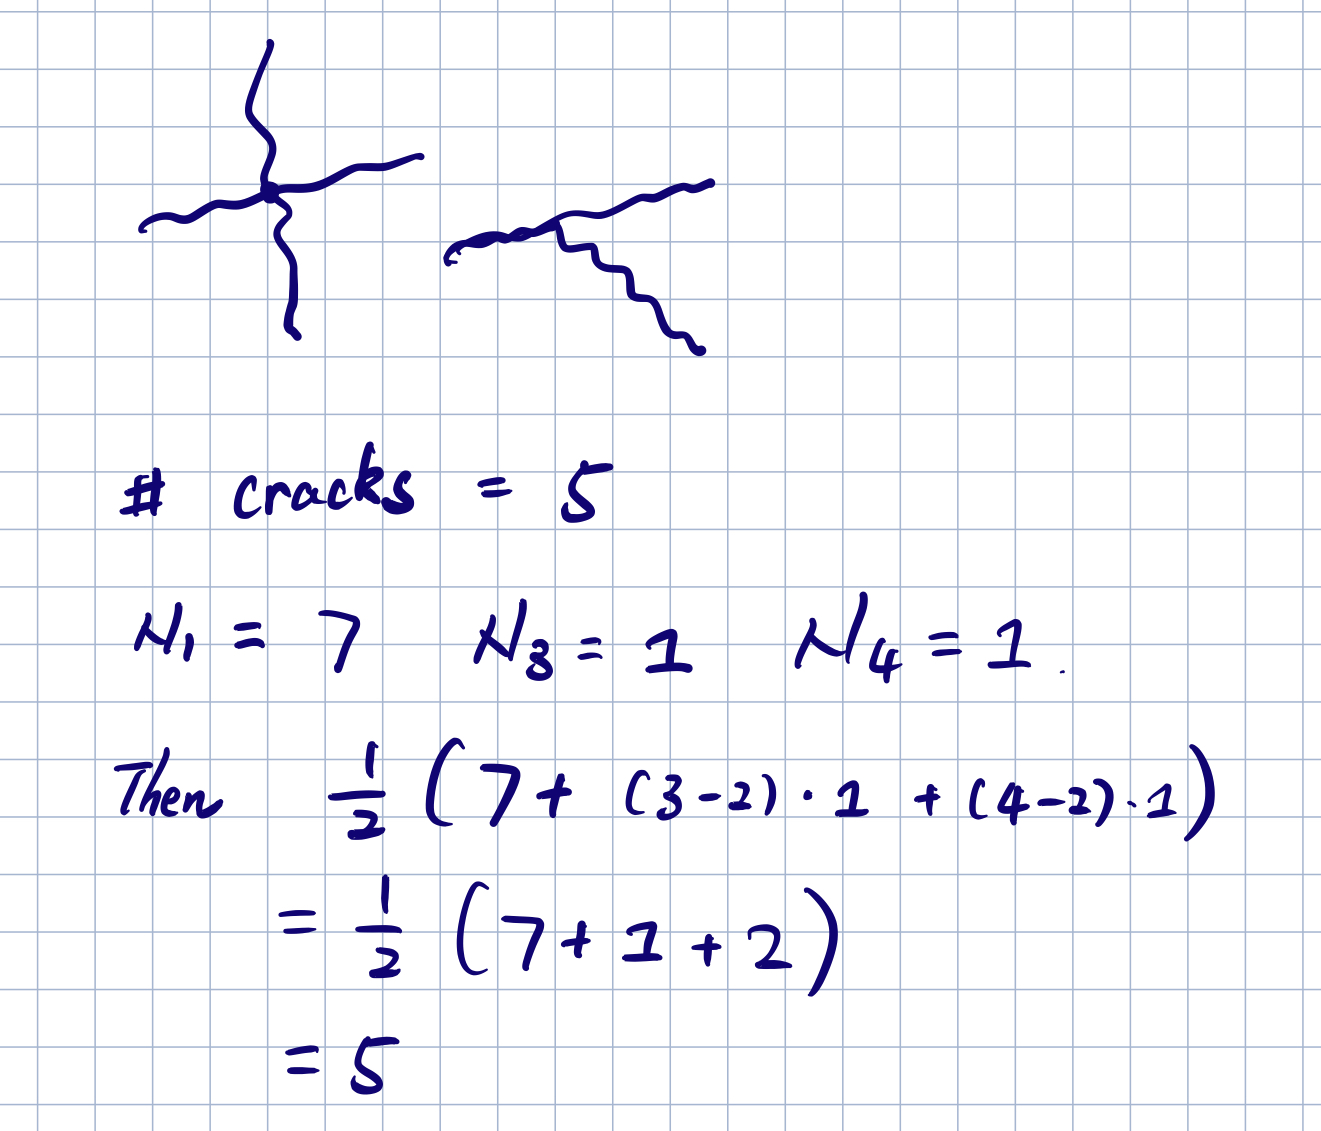 # cracks = 5
N₁ = 7 N₃ = 1 N₄ = 1.
Then 1/2 (7 + (3-2)·1 + (4-2)·1)
= 1/2 (7 + 1 + 2)
= 5